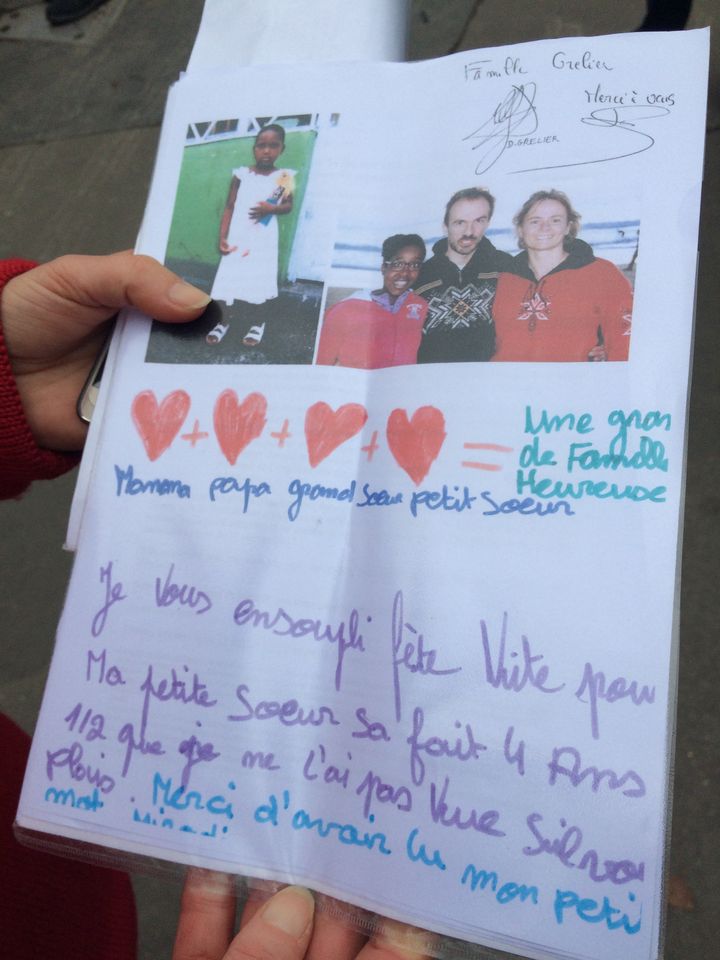 Famille Grelier
Merci à vous
D.GRELIER
+ + + =
Une gran
de Famille
Heureuse
Mamama papa grand Soeur petit Soeur
Je Vous ensoupli fète Vuite pour
Ma petite Soeur Sa fait 4 Ans
1/2 que je ne l'ai pas Vue Silvou
plais. Merci d'avair lu mon peti
mot